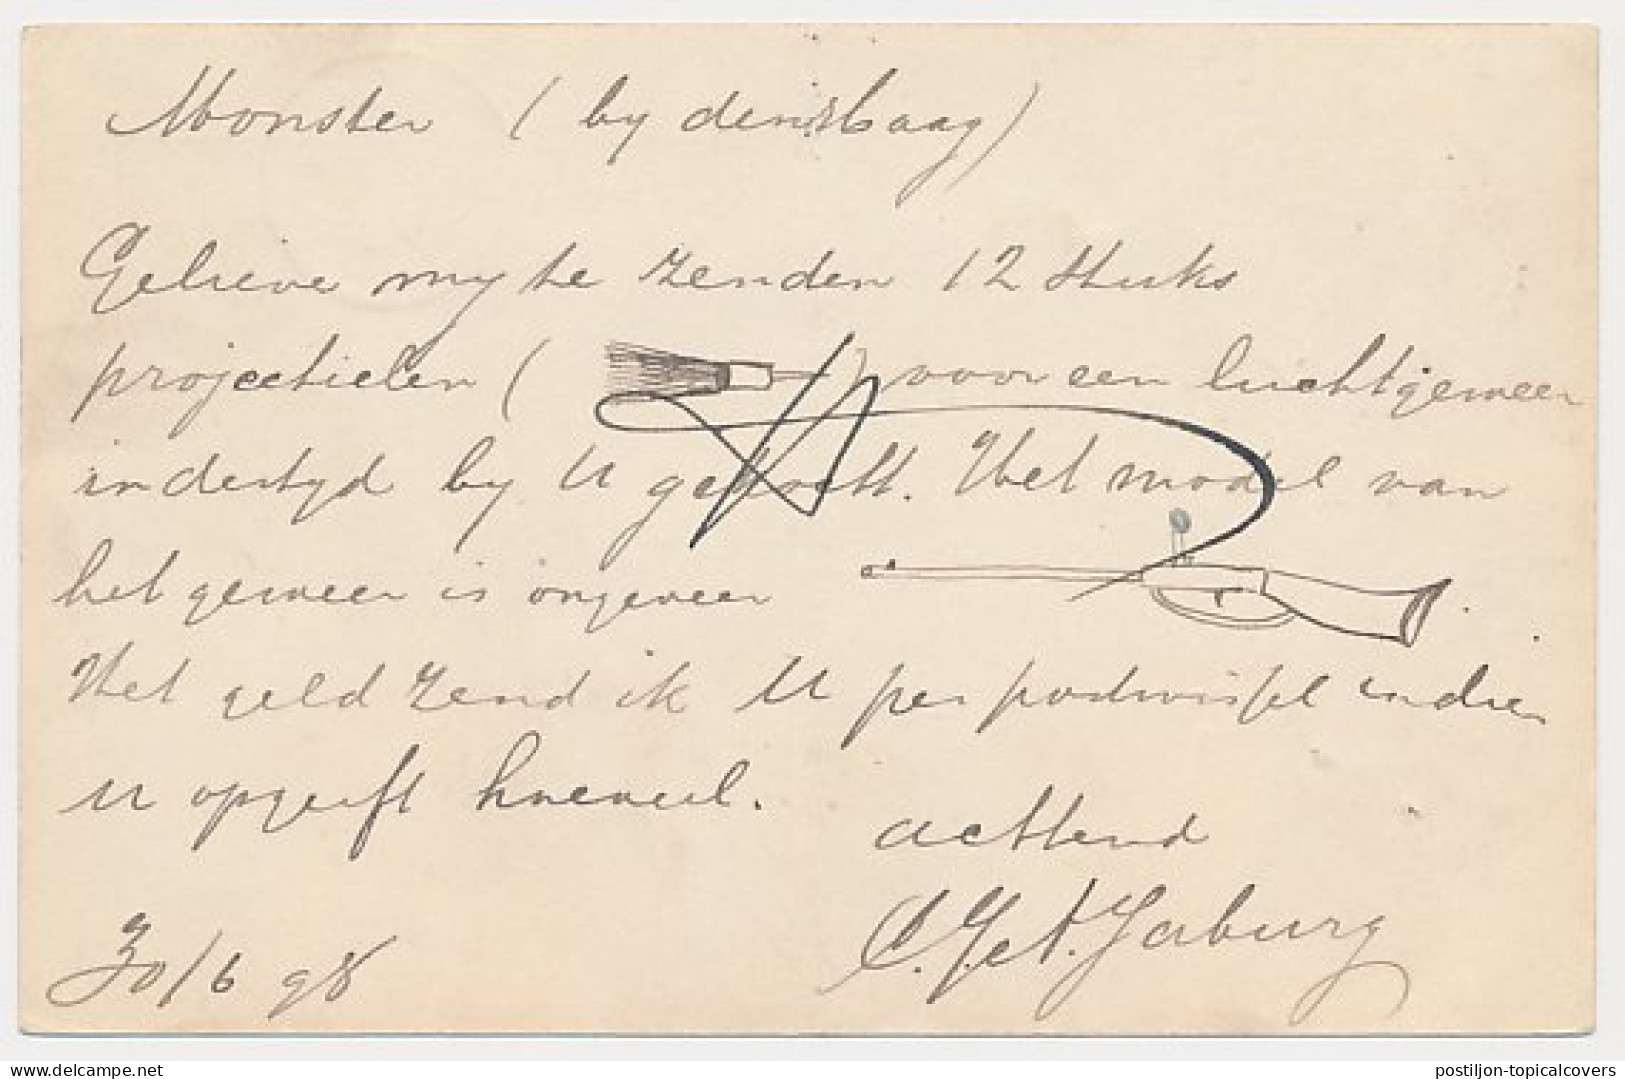 Monster (by den Haag)
Gelieve my te zenden 12 stuks
projectielen ( ) voor een luchtgeweer
indertyd by U gekocht. Het model van
het geweer is ongeveer
Het geld zend ik U per postwissel indien
U opgeeft hoeveel.
achtend
30/6 98
delcampe.net
postiljon-topicalcovers